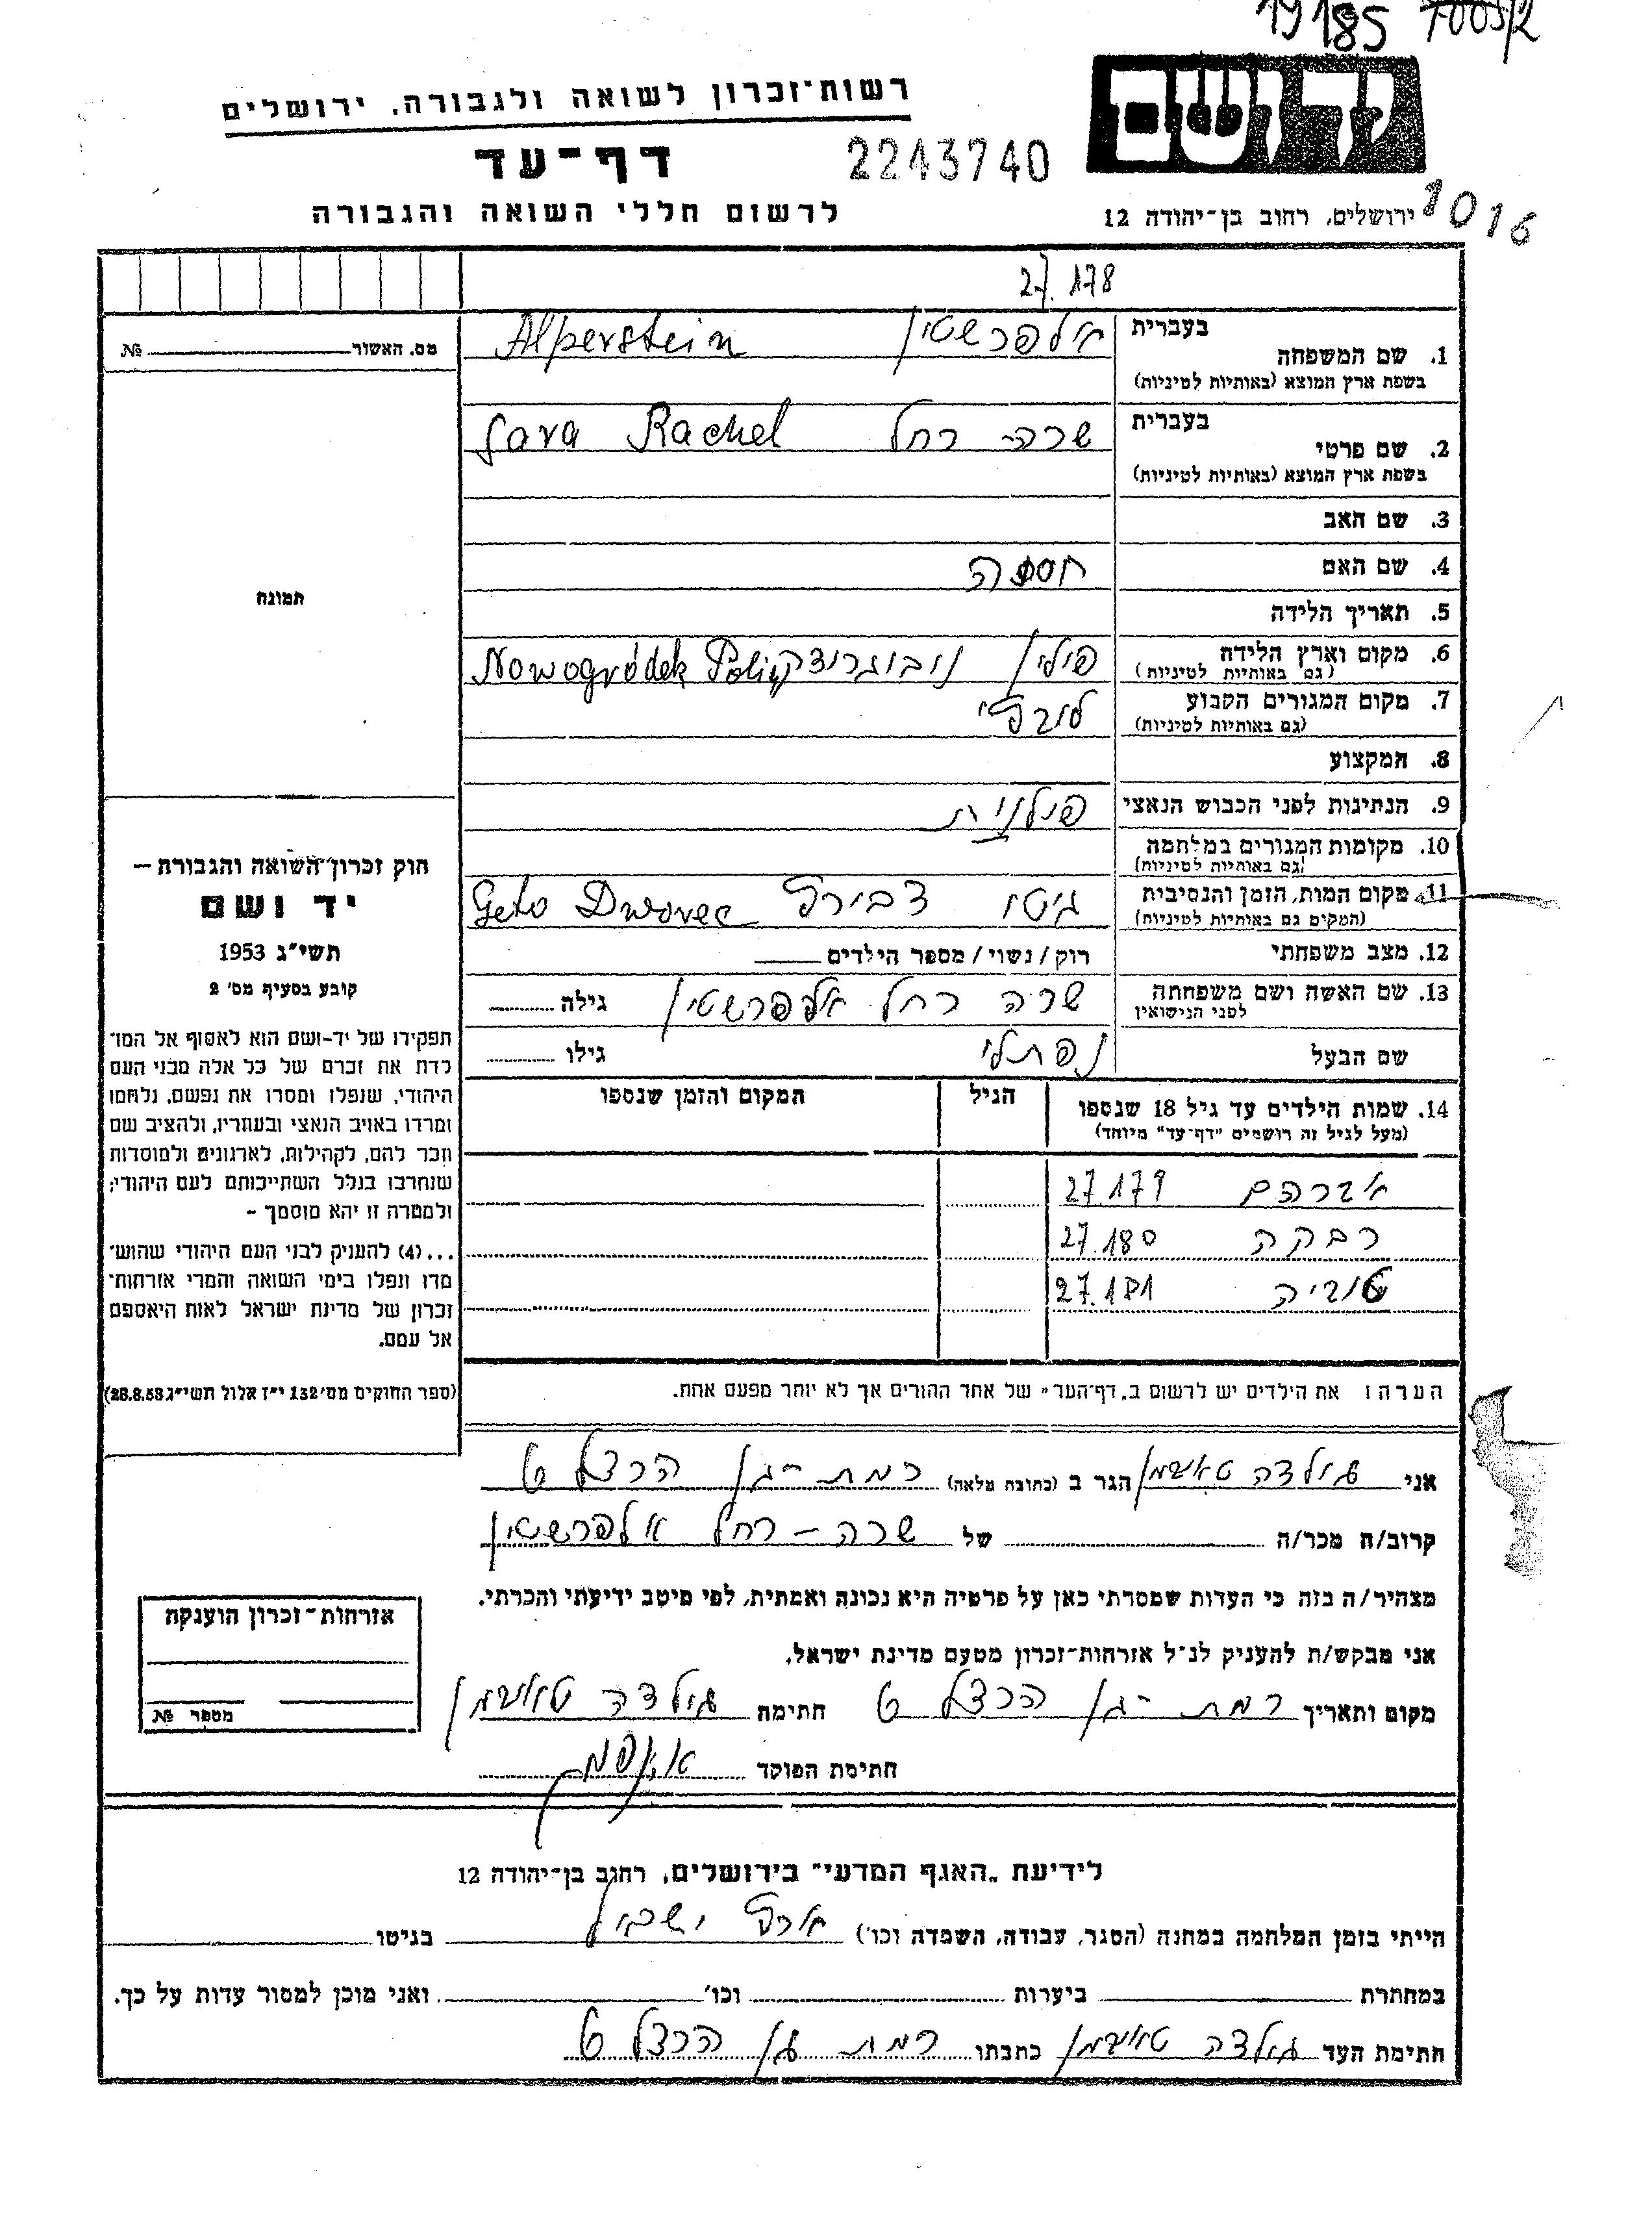 19185 7005/2
רשות־זכרון לשואה ולגבורה, ירושלים
יד ושם
דף־עד
2243740
לרשום חללי השואה והגבורה
ירושלים, רחוב בן־יהודה 12
1016
27.178
1. שם המשפחה
בעברית
בשפת ארץ המוצא (באותיות לטיניות)
אלפרשטין Alperstein
מס. האשור № 
2. שם פרטי
בעברית
בשפת ארץ המוצא (באותיות לטיניות)
שרה רחל Sara Rachel
3. שם האב
4. שם האם
תמונה
5. תאריך הלידה
6. מקום וארץ הלידה
(גם באותיות לטיניות)
פולין נובוגרודק Nowogródek Polin
7. מקום המגורים הקבוע
(גם באותיות לטיניות)
8. המקצוע
9. הנתינות לפני הכבוש הנאצי פולנית
10. מקומות המגורים במלחמה
(גם באותיות לטיניות)
11. מקום המות, הזמן והנסיבות
(המקום גם באותיות לטיניות)
גיטו דבורץ Geto Dworec
12. מצב משפחתי רוק/נשוי/מספר הילדים
13. שם האשה ושם משפחתה
לפני הנישואין
שרה רחל אלפרשטין גילה
שם הבעל נפתלי גילו
14. שמות הילדים עד גיל 18 שנספו
(מעל לגיל זה רושמים "דף־עד" מיוחד)
הגיל
המקום והזמן שנספו
אברהם 27.179
רבקה 27.180
טוביה 27.181
הערה: את הילדים יש לרשום ב„דף־העד" של אחד ההורים אך לא יותר מפעם אחת.
חוק זכרון־השואה והגבורה –
יד ושם
תשי״ג 1953
קובע בסעיף מס׳ 2
תפקידו של יד-ושם הוא לאסוף אל המו־
לדת את זכרם של כל אלה מבני העם
היהודי, שנפלו ומסרו את נפשם, נלחמו
ומרדו באויב הנאצי ובעוזריו, ולהציב שם
וזכר להם, לקהילות, לארגונים ולמוסדות
שנחרבו בגלל השתייכותם לעם היהודי;
ולמטרה זו יהא מוסמך –
...(4) להעניק לבני העם היהודי שהוש־
מדו ונפלו בימי השואה והמרי אזרחות־
זכרון של מדינת ישראל לאות היאספם
אל עמם.
(ספר החוקים מס׳ 132 י״ז אלול תשי״ג 28.8.53)
אני גולדה הגר ב (כתובת מלאה) רמת-גן הרצל 6
קרוב/ה מכר/ה של שרה – רחל אלפרשטין
מצהיר/ה בזה כי העדות שמסרתי כאן על פרטיה היא נכונה ואמתית, לפי מיטב ידיעתי והכרתי.
אני מבקש/ת להעניק לנ״ל אזרחות־זכרון מטעם מדינת ישראל.
מקום ותאריך רמת-גן הרצל 6 חתימה גולדה
חתימת הפוקד
אזרחות־זכרון הוענקה
מספר №
לידיעת „האגף המדעי" בירושלים, רחוב בן־יהודה 12
הייתי בזמן המלחמה במחנה (הסגר, עבודה, השמדה וכו׳) ארץ ישראל בגיטו
במחתרת ביערות וכו׳ ואני מוכן למסור עדות על כך.
חתימת העד גולדה כתבתו רמת גן הרצל 6